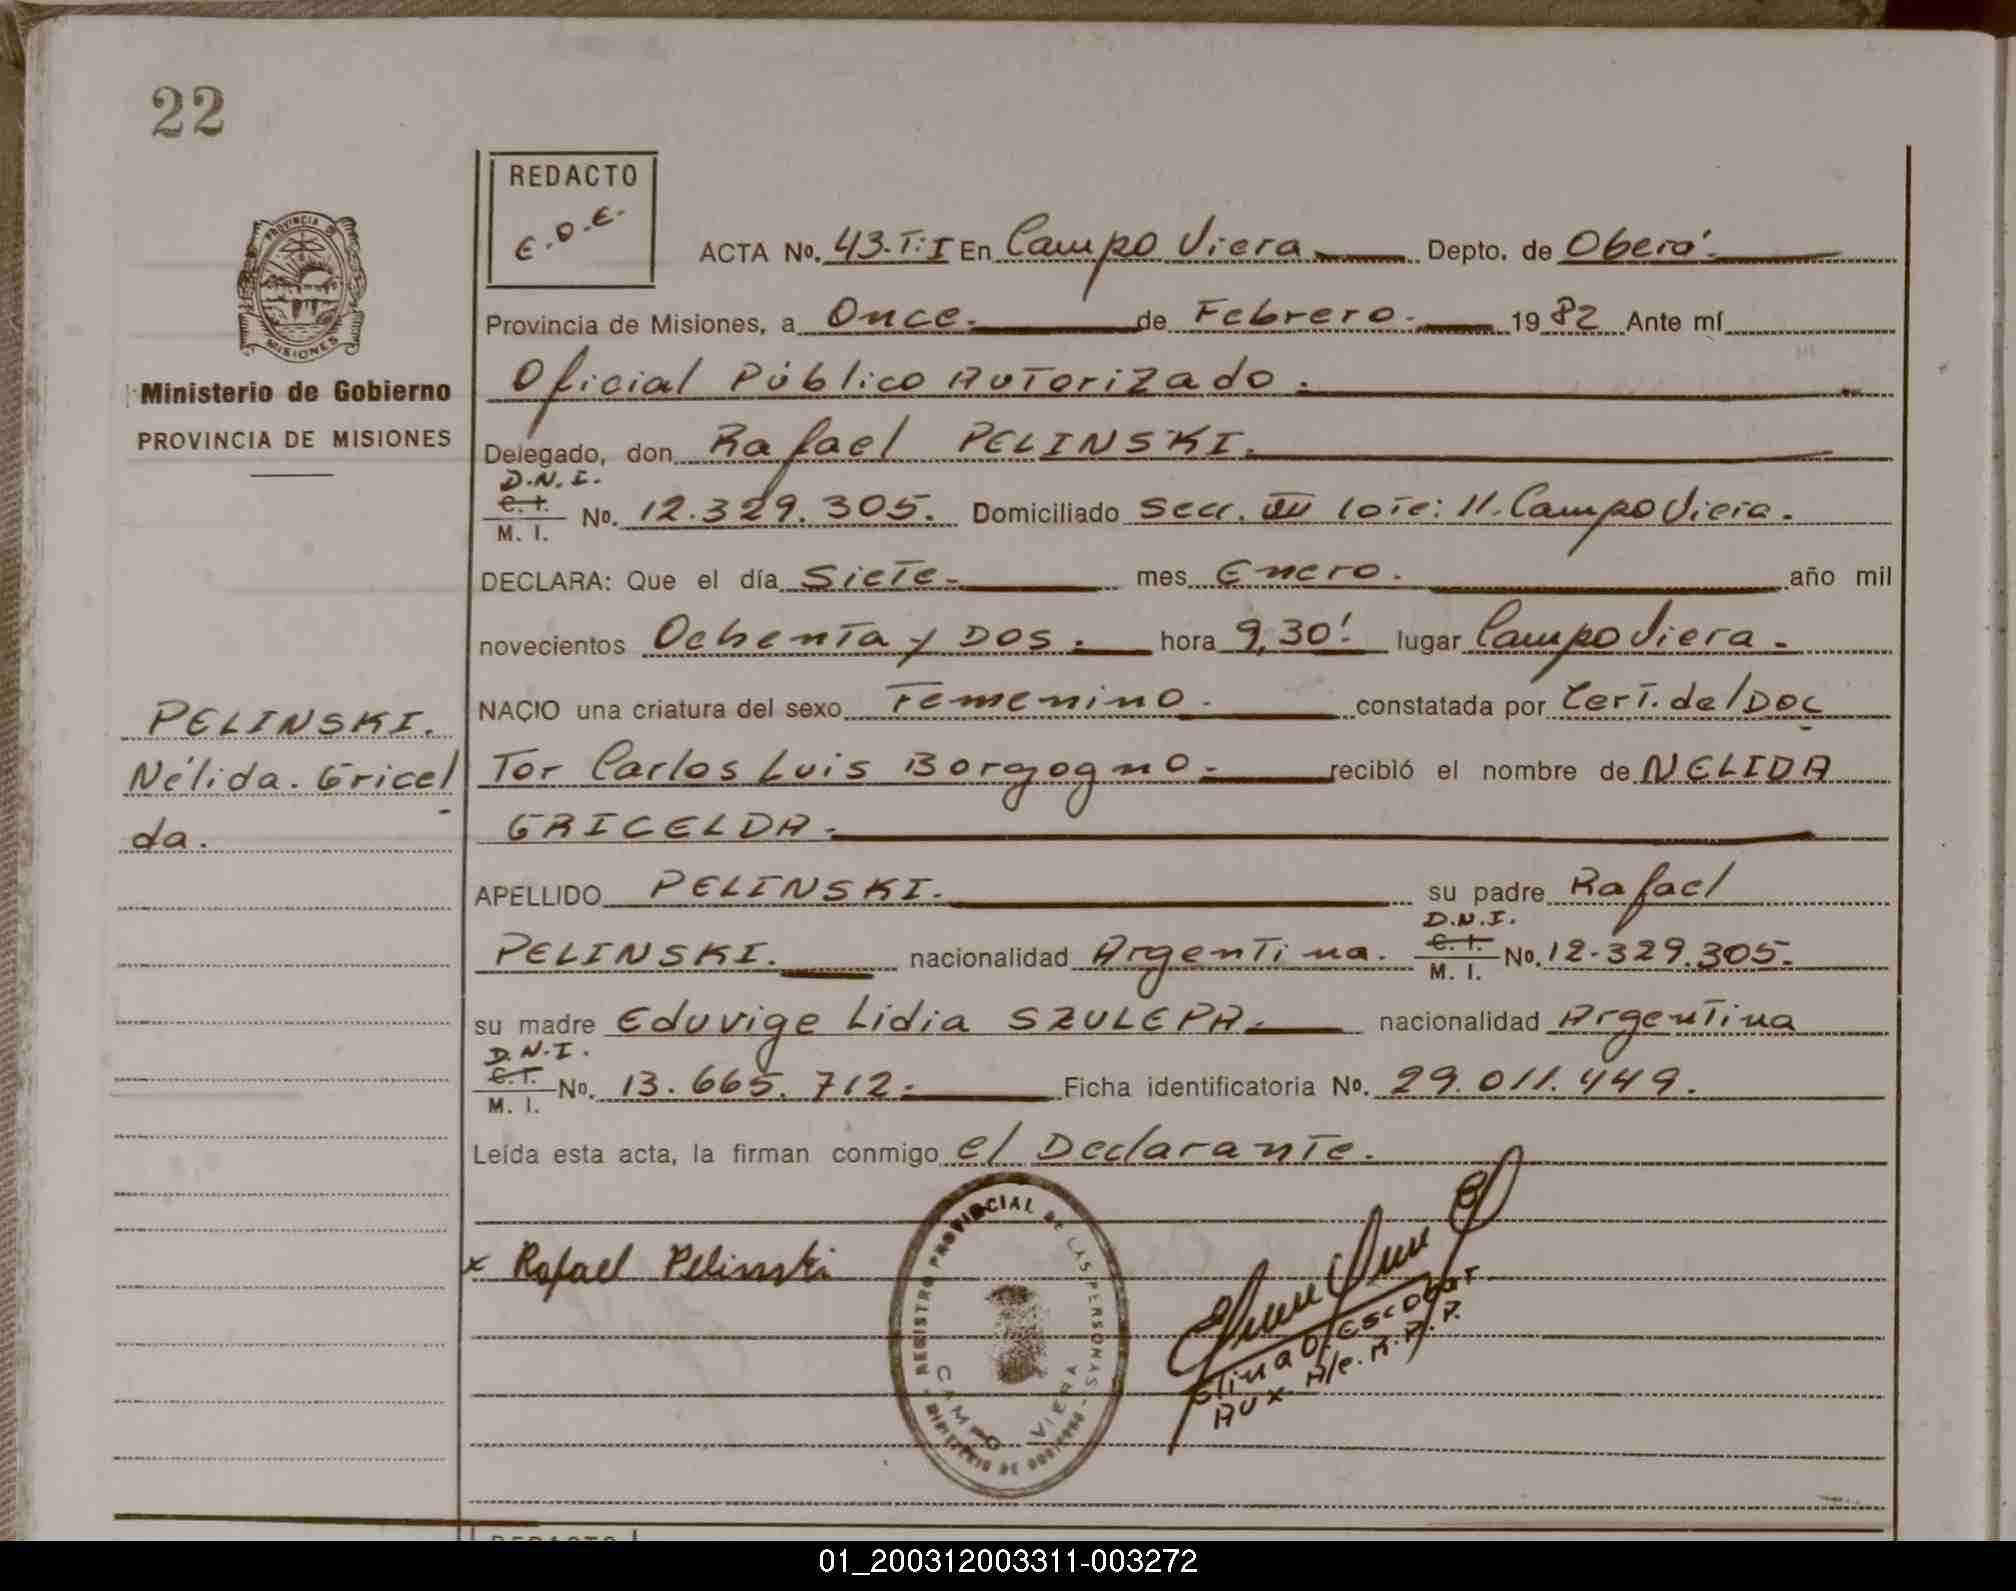 22
REDACTO
E.O.E.
PROVINCIA D
MISIONES
Ministerio de Gobierno
PROVINCIA DE MISIONES
ACTA No. 43.T:I En Campo Viera Depto. de Oberá.
Provincia de Misiones, a Once. de Febrero. 1982 Ante mí
Oficial Público Autorizado.
Delegado, don Rafael PELINSKI.
D.N.I.
C.I.
M. I. No. 12.329.305. Domiciliado Secc. III lote: 11. Campo Viera.
DECLARA: Que el día Siete. mes Enero. año mil
novecientos Ochenta y Dos. hora 9,30' lugar Campo Viera.
NACIO una criatura del sexo Femenino. constatada por Cert. del Doc
Tor Carlos Luis Borgogno. recibió el nombre de NELIDA
GRICELDA.
PELINSKI.
Nélida. Gricel
da.
APELLIDO PELINSKI. su padre Rafael
D.N.I.
C.I.
PELINSKI. nacionalidad Argentina. M. I. No. 12.329.305.
su madre Eduvige Lidia SZULEPA. nacionalidad Argentina
D.N.I.
C.I.
M. I. No. 13.665.712. Ficha identificatoria No. 29.011.449.
Leída esta acta, la firman conmigo el Declarante.
x Rafael Pelinski
REGISTRO PROVINCIAL DE LAS PERSONAS
CAMPO VIERA
MINISTERIO DE GOBIERNO
O. Escobar
Aux A/c. R.P.P.
REDACTO
01_200312003311-003272